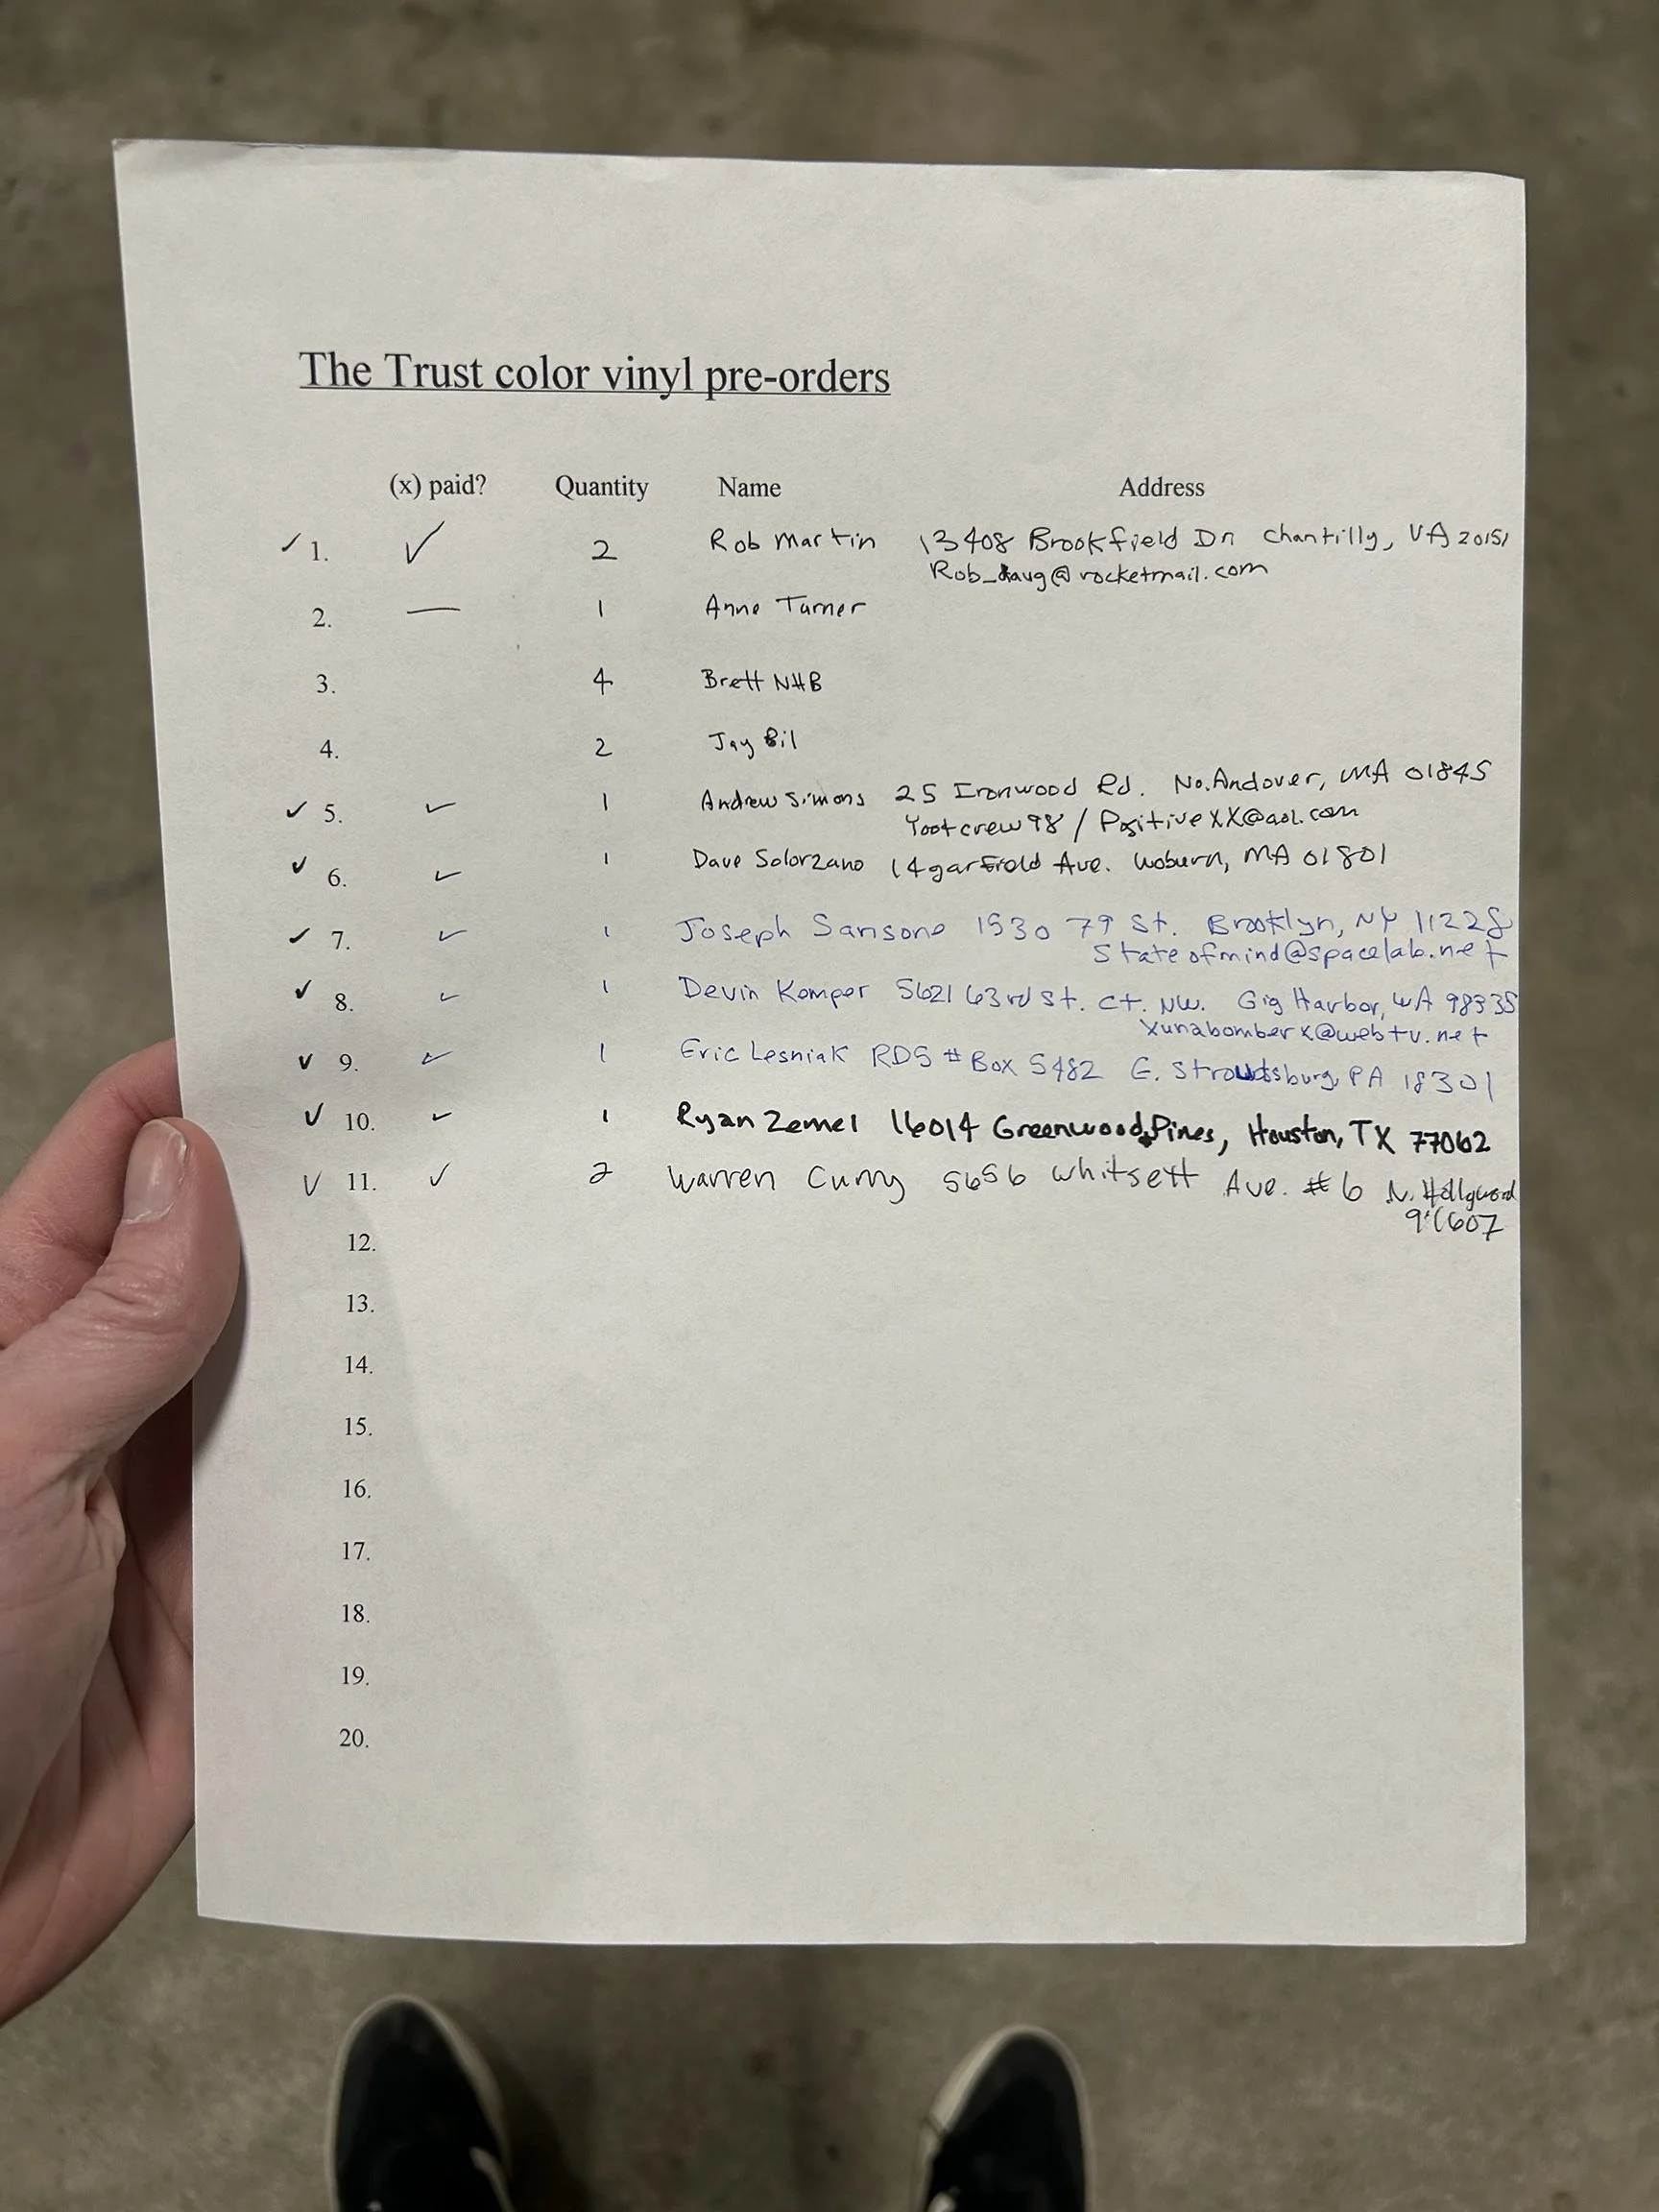 The Trust color vinyl pre-orders
(x) paid? Quantity Name Address
✓ 1. ✓ 2 Rob Martin 13408 Brookfield Dr Chantilly, VA 20151
@rocketmail.com
2. — 1 Anne Turner
3. 4 Brett NHB
4. 2 Jay Bil
✓ 5. ✓ 1 Andrew Simons 25 Ironwood Rd. No. Andover, MA 01845
Yootcrew98 / PositiveXX@aol.com
✓ 6. ✓ 1 Dave Solorzano 14 garfield Ave. Woburn, MA 01801
✓ 7. ✓ 1 Joseph Sansone 1530 79 St. Brooklyn, NY 11228
Stateofmind@spacelab.net
✓ 8. ✓ 1 Devin Kemper 5621 63rd St. Ct. NW. Gig Harbor, WA 98335
xunabomberx@webtv.net
✓ 9. ✓ 1 Eric Lesniak RD5 # Box 5482 E. Stroudsburg, PA 18301
✓ 10. ✓ 1 Ryan Zemel 16014 Greenwood Pines, Houston, TX 77062
✓ 11. ✓ 2 Warren Curry 5656 Whitsett Ave. #6 N. Hollywood
91607
12.
13.
14.
15.
16.
17.
18.
19.
20.